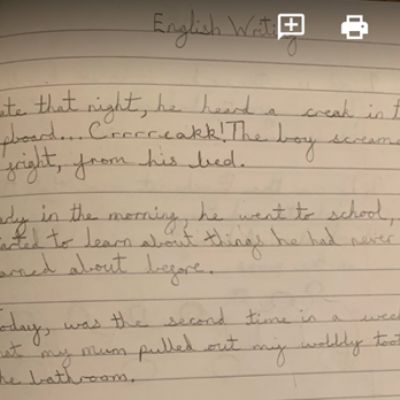 English Writing
ate that night, he heard a creak in t
pboard... Crrrreakk! The boy scream
fright, from his bed.
ady in the morning, he went to school,
arted to learn about things he had never
arned about before.
oday, was the second time in a wee
at my mum pulled out my wobbly toot
he bathroom.